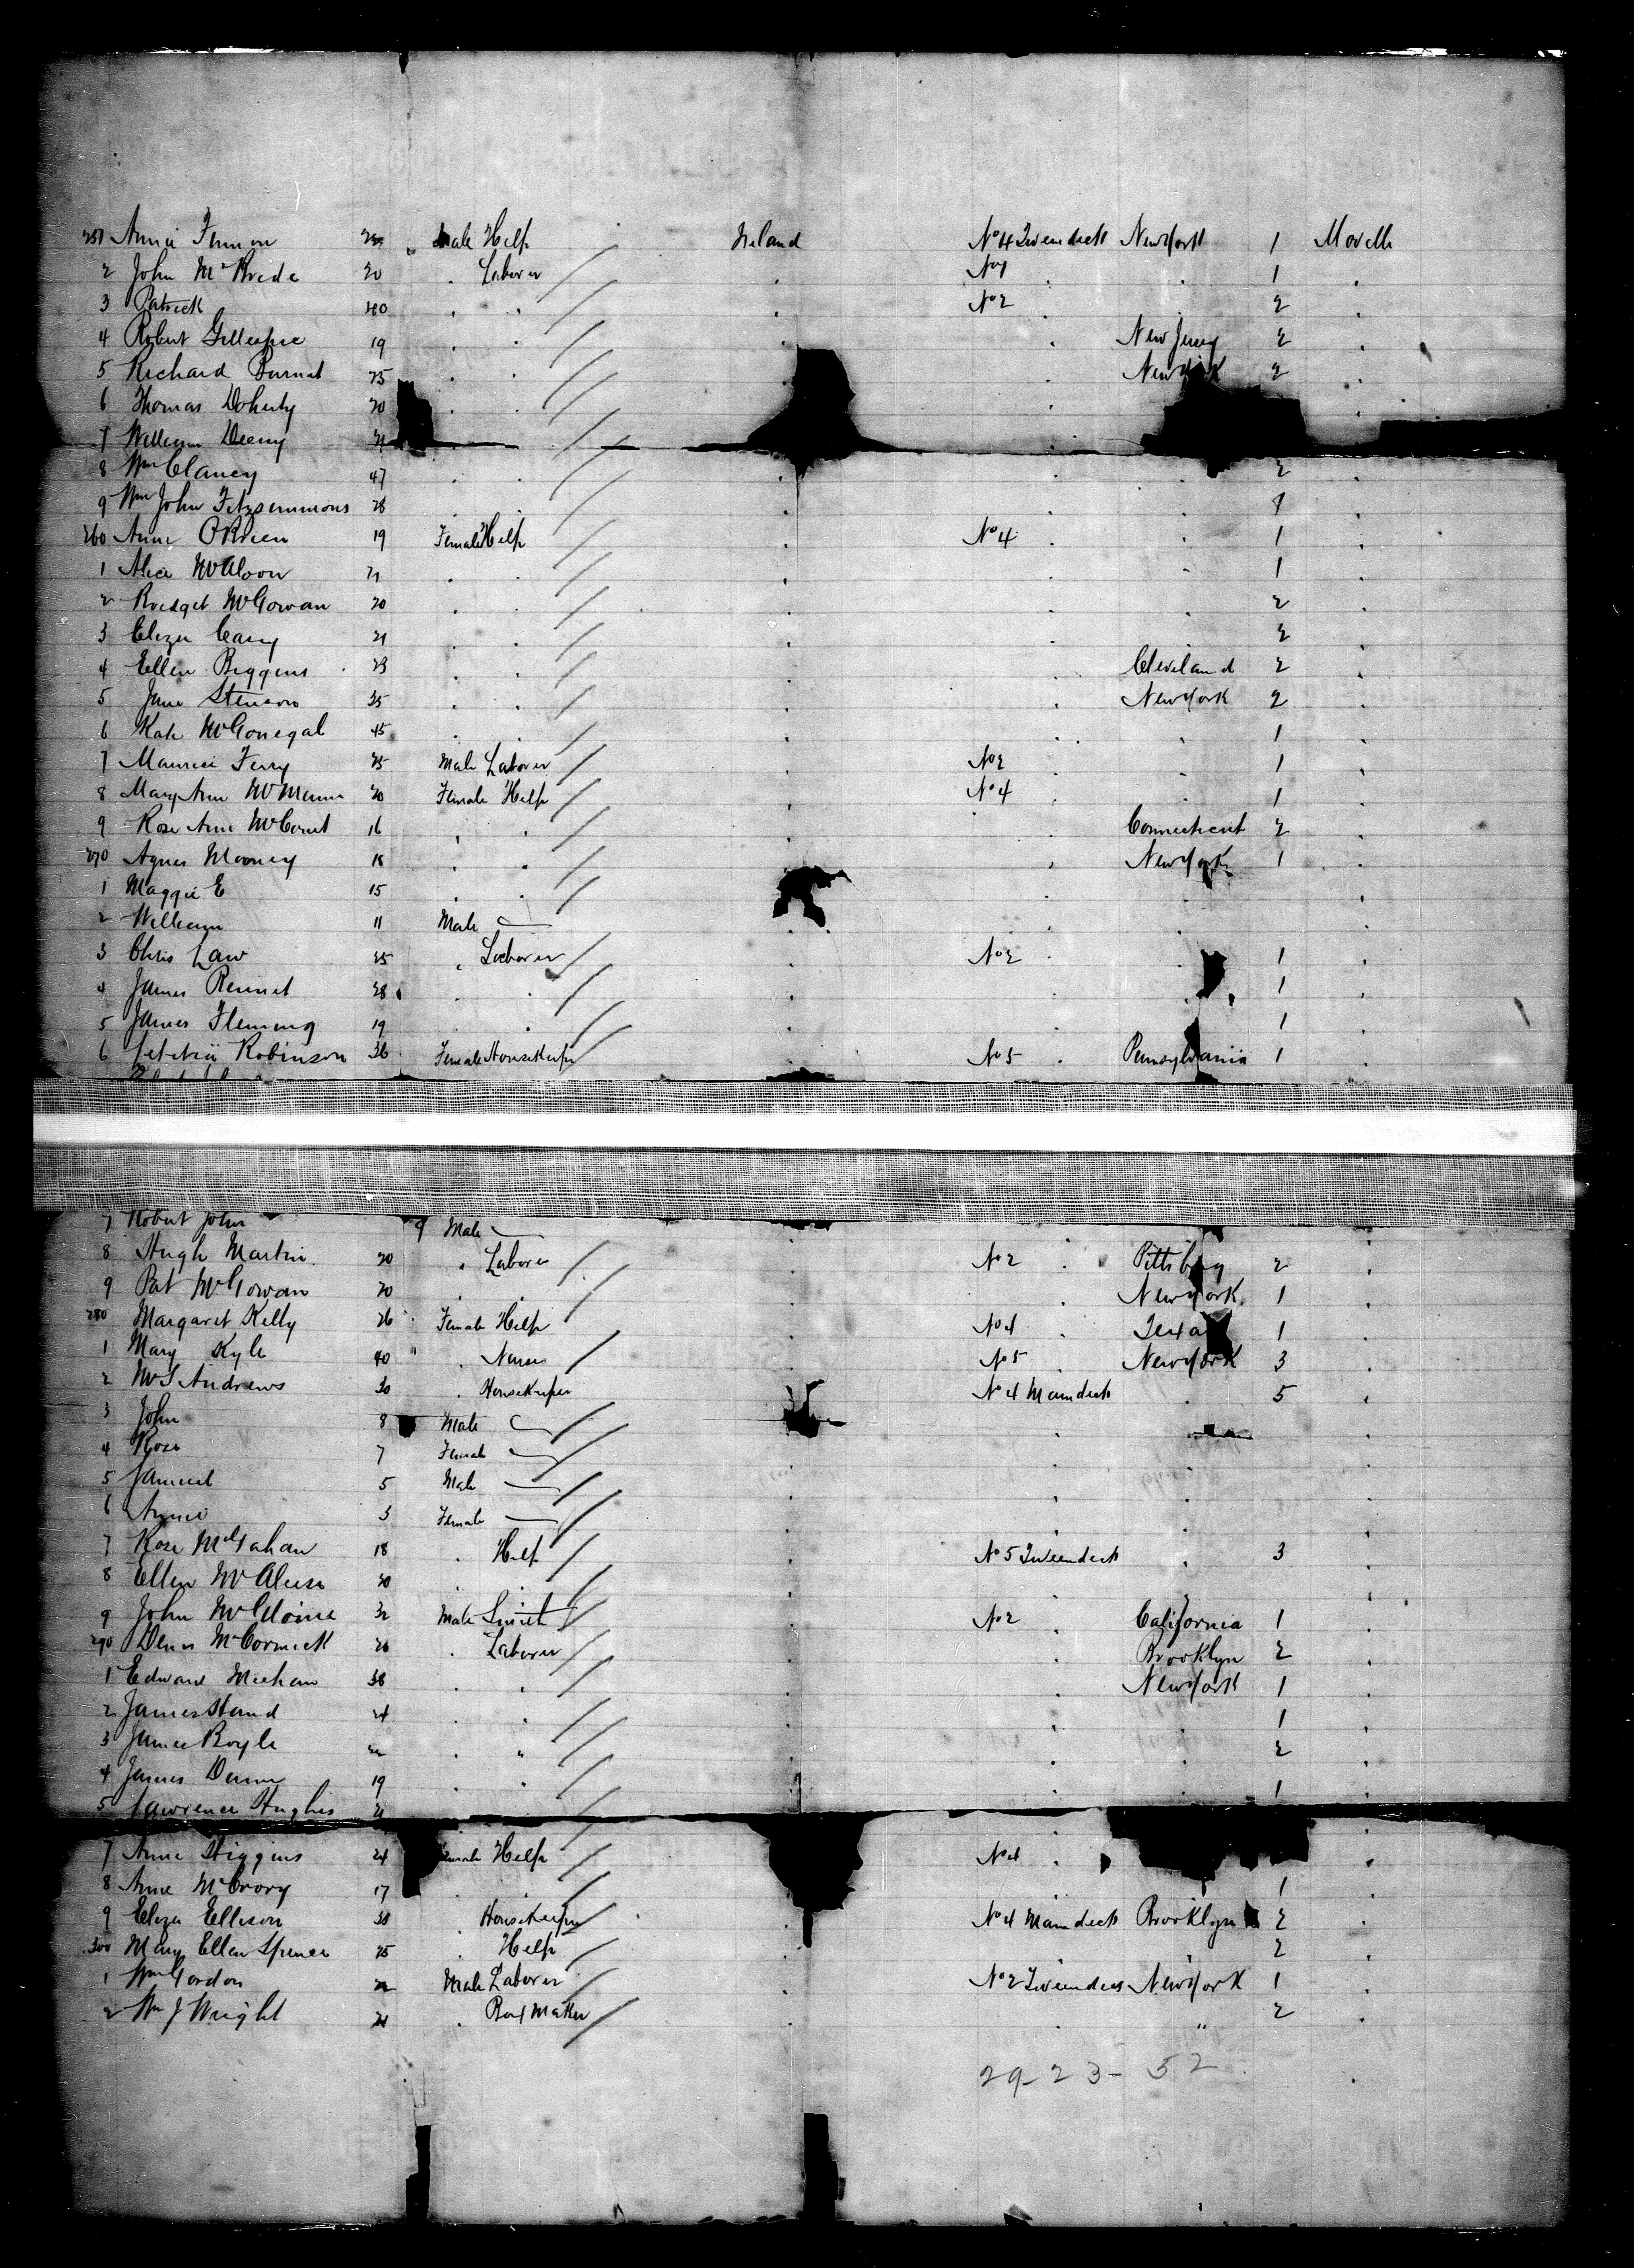 251 Annie 24 Male Help Ireland No 4 Tweendeck New York 1 Moville
2 John McBride 20 . Laborer . No 1 . . 1 .
3 Patrick 40 . . . No 2 . . 2 .
4 Robert Gillespie 19 . . . . New Jersey 2 .
5 Richard Burnet 25 . . . New York 2 .
6 Thomas Doherty 20 . . .
7 William Deeny 21
8 Wm Clancy 47 . . . . . 2 .
9 Wm John Fitzsimmons 28 . . . . . 1 .
260 Anne OBrien 19 Female Help . No 4 . . 1 .
1 Alice McAloon 21 . . . . . 1 .
2 Bridget McGowan 20 . . . . . 2 .
3 Eliza Cary 21 . . . . . 2 .
4 Ellen Biggins 23 . . . . Cleveland 2 .
5 Jane Stenson 35 . . . . New York 2 .
6 Kate McGonegal 45 . . . . . 1 .
7 Maurice Ferry 25 Male Laborer . No 2 . . 1 .
8 Mary Ann 20 Female Help . No 4 . . 1 .
9 Rose Ann McCourt 16 . . . . Connecticut 2 .
270 Agnes Mooney 18 . . . New York 1 .
1 Maggie E 15 . . . .
2 William 11 Male . . . .
3 Chris Law 35 . Laborer . No 2 . . 1 .
4 James Bennet 28 . . . . 1 .
5 James Fleming 19 . . . . 1 .
6 Letitia Robinson 36 Female Housekeeper . No 5 . Pennsylvania 1 .
7 Robert John 9 Male
8 Hugh Martin 20 . Laborer . No 2 . Pittsburg 2 .
9 Pat McGowan 20 . . . . New York 1 .
280 Margaret Kelly 26 Female Help . No 4 . Texas 1 .
1 Mary Kyle 40 . Nurse . No 5 . New York 3 .
2 Andrews 30 . Housekeeper . No 4 Maindeck . 5 .
3 John 8 Male . .
4 Rose 7 Female . . . .
5 Samuel 5 Male . . . .
6 Annie 3 Female . . . .
7 Rose McGahan 18 . Help . No 5 Tweendeck . 3 .
8 Ellen McAleese 30 . . . . . .
9 John 32 Male Smith . No 2 . California 1 .
290 Denis McCormick 26 . Laborer . . Brooklyn 2 .
1 Edward Meehan 38 . . . . New York 1 .
2 James Hand 24 . . . . . 1 .
3 James Boyle 22 . " . . . 2 .
4 James Dunn 19 . . . . . 1 .
5 Lawrence Hughes 21 .
7 Anne Higgins 24 Female Help No 4 . .
8 Anne McCrory 17 . . . 1 .
9 Eliza Ellison 30 Housekeeper . No 4 Maindeck Brooklyn 2 .
300 Mary Ellen Spence 25 . Help . . . 2 .
1 Wm Gordon 22 Male Laborer . No 2 Tweendeck New York 1 .
2 Wm J Wright 21 . Box Maker . . " 2 .
29-23-52